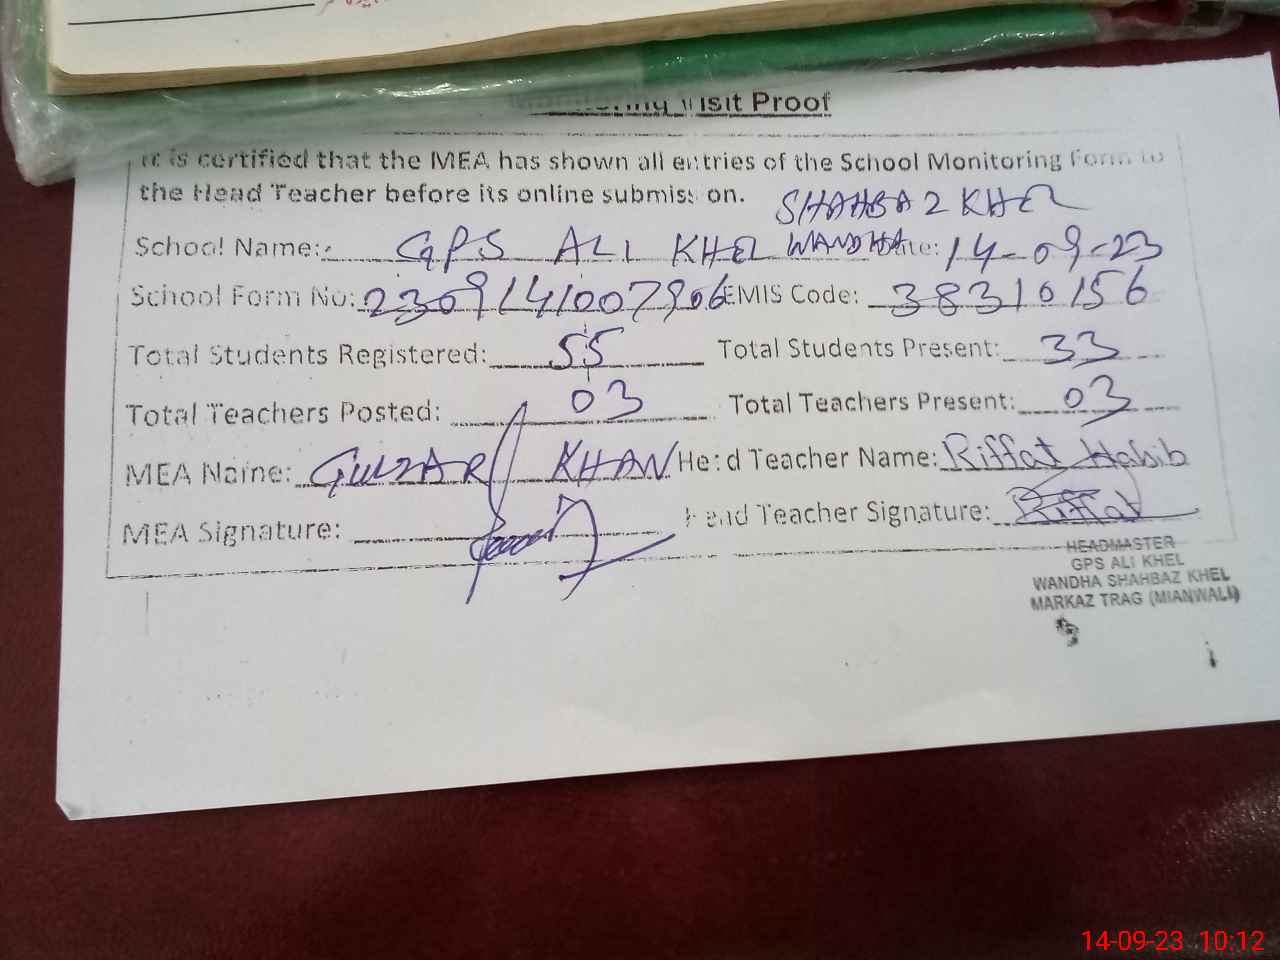 Monitoring Visit Proof
It is certified that the MEA has shown all entries of the School Monitoring Form to
the Head Teacher before its online submission.
SHAHBAZ KHEL
School Name: GPS ALI KHEL WANDHA Date: 14-09-23
School Form No: 2309141007906 EMIS Code: 38310156
Total Students Registered: 55 Total Students Present: 33
Total Teachers Posted: 03 Total Teachers Present: 03
MEA Name: GULZAR KHAN Head Teacher Name: Riffat Habib
MEA Signature: Head Teacher Signature: Riffat
HEADMASTER
GPS ALI KHEL
WANDHA SHAHBAZ KHEL
MARKAZ TRAG (MIANWALI)
14-09-23 10:12